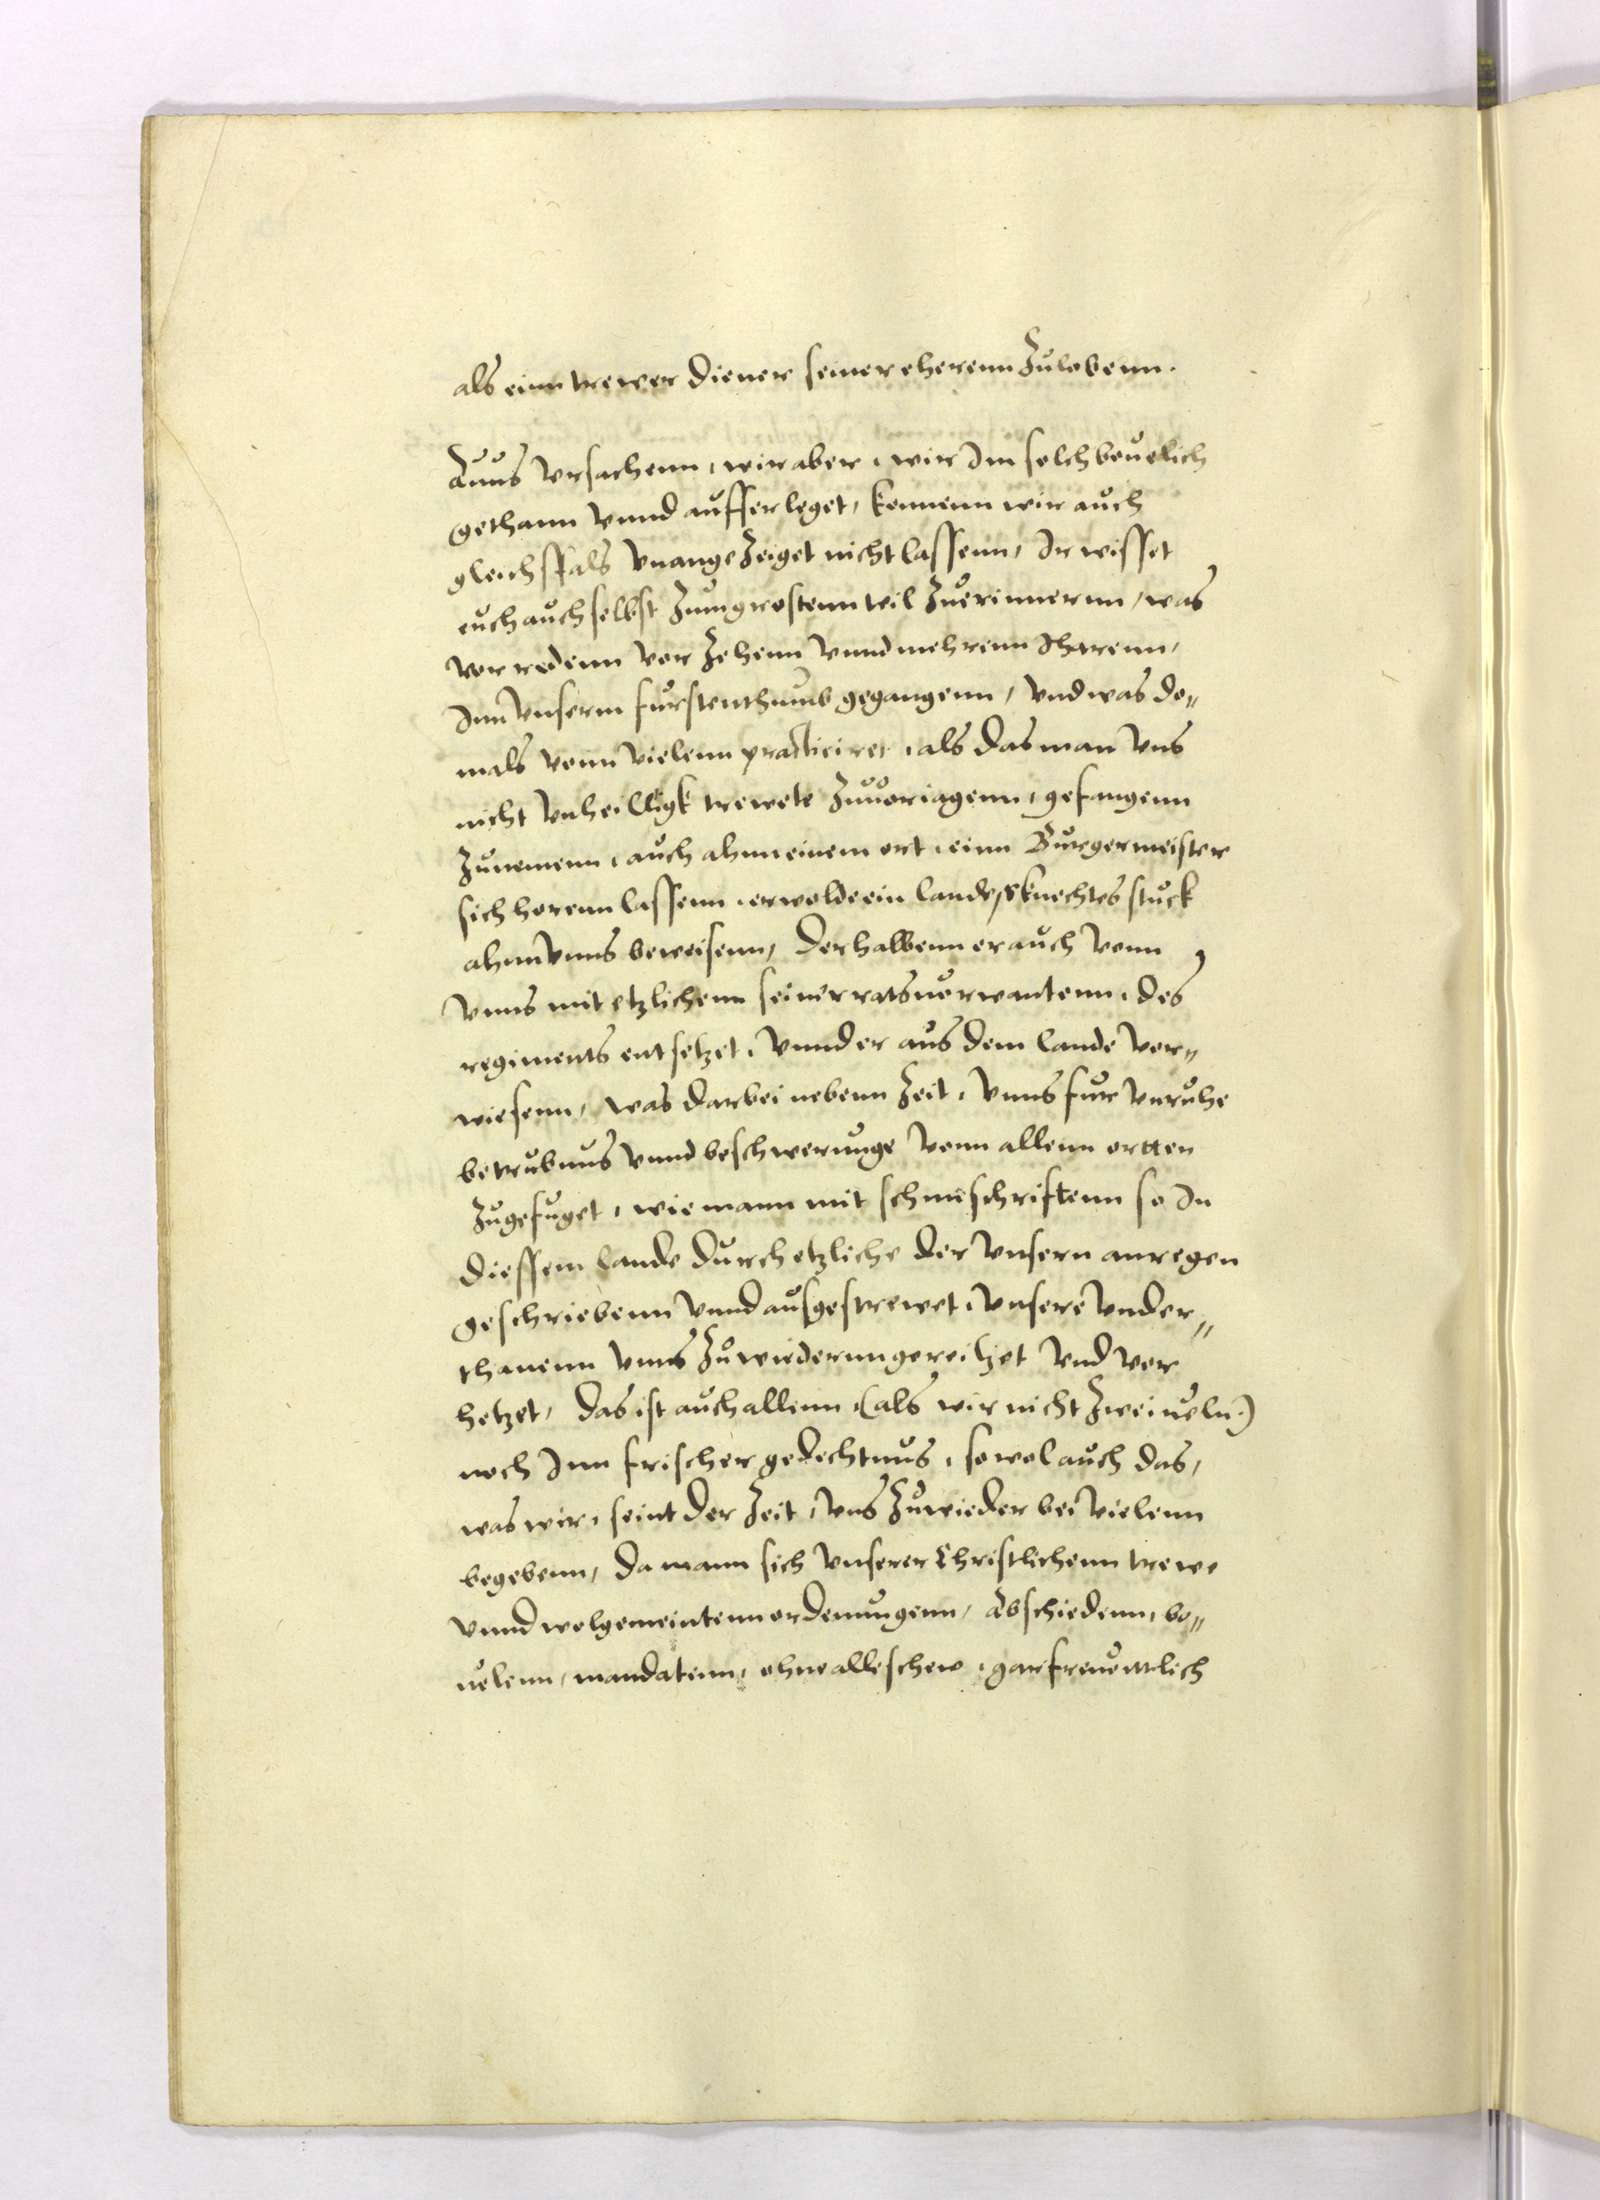 als einn trewer diener seiner eherenn Zulobenn.
Auus vrsachenn, wir aber, wir Im solch beuelich
gethann vnnd aufferleget, kennenn wir auch
gleichsfals vnangeZeiget nicht lassenn, Ir wisset
euch auch selbst Zum grostenn teil Zuerinnernn, was
vor redenn vor Zehenn vnnd mehrenn Iharenn,
Inn vnserm furstenthumb gegangenn, vnd was do„
mals vonn vielenn practiciret, als das man vns
nicht vnheilligk trewete Zuuoriagenn, gefangenn
Zunemenn, auch ahnn einem ort, einn Burgermeister
sich horenn lassenn, er wolde ein landesknechtes stuck
ahnn vnns beweisenn, derhalbenn er auch vonn
vnns mit etzlichenn seiner ratsuerwantenn, des
regiments entsetzet, vnnd er aus dem lande vor„
wiesenn, was darbei nebenn Zeit, vnns fur vnruhe
betrubnus vnnd beschwerunge vonn allenn ortten
Zugefuget, wie mann mit schmeschriftenn so In
diessem lande durch etzliche der vnsern anregen
geschriebenn vnnd ausgestrewet, vnsere vnder„
thanenn vnns Zuwiedernn gereitzet vnd vor
hetzet, das ist auch allenn (als wir nicht Zweiueln)
noch Inn frischer gedechtnus, so wol auch das,
was wir, seint der Zeit, vns Zuwieder bei vielenn
begebenn, da mann sich vnserer Christlichenn trewe
vnnd wolgemeintenn ordenungenn, Abschiedenn, be„
uelenn, mandatenn, ohne alle schew, gar freuentlich